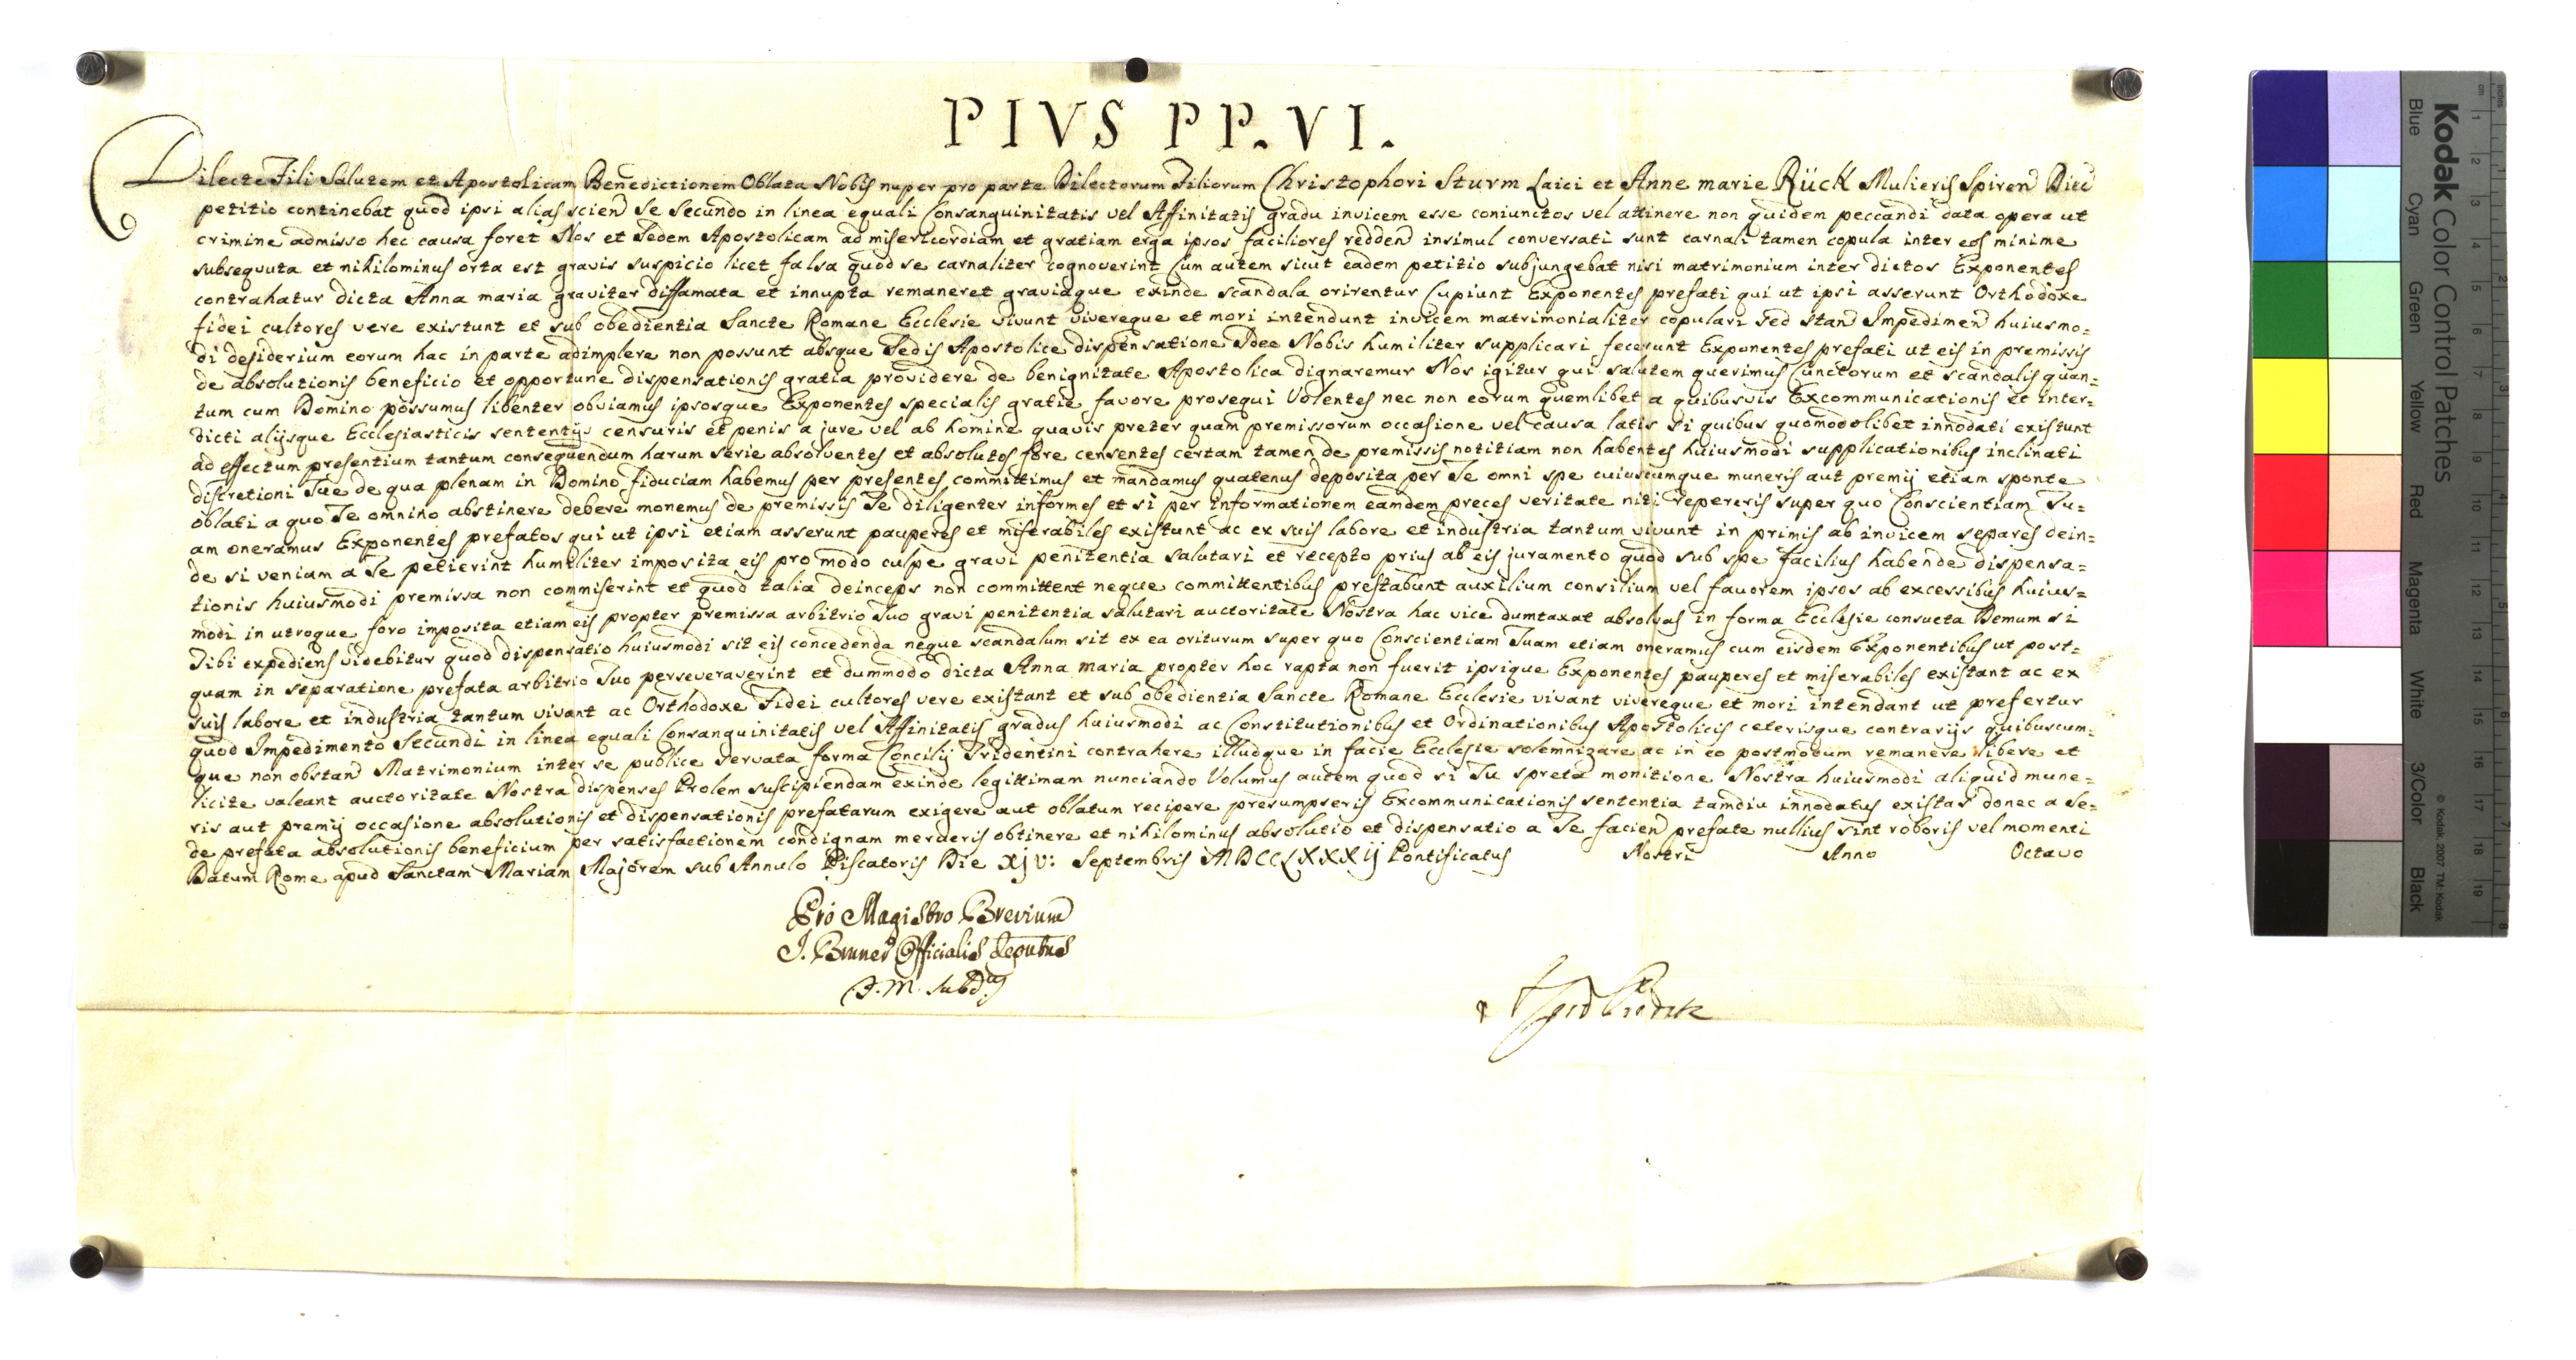 PIVS PP. VI.
Dilecte Fili Salutem et Apostolicam Benedictionem Oblata Nobis nuper pro parte Dilectorum Filiorum Christophori Sturm Laici et Anne marie Rück Mulieris Spiren Diec
petitio continebat quod ipsi alias scien se secundo in linea equali Consanguinitatis vel Affinitatis gradu invicem esse coniunctos vel attinere non quidem peccandi data opera ut
crimine admisso hec causa foret Nos et Sedem Apostolicam ad misericordiam et gratiam erga ipsos faciliores redden insimul conversati sunt carnali tamen copula inter eos minime
subsequuta et nihilominus orta est gravis suspicio licet falsa quod se carnaliter cognoverint Cum autem sicut eadem petitio subjungebat nisi matrimonium inter dictos Exponentes
contrahatur dicta Anna maria graviter diffamata et innupta remaneret graviaque exinde scandala orirentur Cupiunt Exponentes prefati qui ut ipsi asserunt Orthodoxe
fidei cultores vere existunt et sub obedientia Sancte Romane Ecclesie vivunt vivereque et mori intendunt invicem matrimonialiter copulari Sed stan Impedimen huiusmo=
di desiderium eorum hac in parte adimplere non possunt absque Sedis Apostolice dispensatione Idee Nobis humiliter supplicari fecerunt Exponentes prefati ut eis in premissis
de absolutionis beneficio et opportune dispensationis gratia providere de benignitate Apostolica dignaremur Nos igitur qui salutem querimus Cunctorum et scandalis quan=
tum cum Domino possumus libenter obviamus ipsosque Exponentes specialis gratie favore prosequi Volentes nec non eorum quemlibet a quibusvis Excommunicationis et inter=
dicti alijsque Ecclesiasticis sententijs censuris et penis a jure vel ab homine quavis preter quam premissorum occasione vel causa latis si quibus quomodolibet innodati existunt
ad effectum presentium tantum consequendum harum serie absolventes et absolutos fore censentes certam tamen de premissis notitiam non habentes huiusmodi supplicationibus inclinati
discretioni Tue de qua plenam in Domino fiduciam habemus per presentes committimus et mandamus quatenus deposita per Te omni spe cuiuscumque muneris aut premij etiam sponte
oblati a quo Te omnino abstinere debere monemus de premissis Te diligenter informes et si per informationem eamdem preces veritate niti repereris super quo Conscientiam Tu=
am oneramus Exponentes prefatos qui ut ipsi etiam asserunt pauperes et miserabiles existunt ac ex suis labore et industria tantum vivunt in primis ab invicem separes dein=
de si veniam a Te petierint humiliter imposita eis pro modo culpe gravi penitentia salutari et recepto prius ab eis juramento quod sub spe facilius habende dispensa=
tionis huiusmodi premissa non commiserint et quod talia deinceps non committent neque committentibus prestabunt auxilium consilium vel favorem ipsos ab excessibus huius=
modi in utroque foro imposita etiam eis propter premissa arbitrio Tuo gravi penitentia salutari auctoritate Nostra hac vice dumtaxat absolvas in forma Ecclesie consueta Demum si
Tibi expediens videbitur quod dispensatio huiusmodi sit eis concedenda neque scandalum sit ex ea oriturum super quo Conscientiam Tuam etiam oneramus cum eisdem Exponentibus ut post=
quam in separatione prefata arbitrio Tuo perseveraverint et dummodo dicta Anna maria propter hoc rapta non fuerit ipsique Exponentes pauperes et miserabiles existant ac ex
suis labore et industria tantum vivant ac Orthodoxe Fidei cultores vere existant et sub obedientia Sancte Romane Ecclesie vivant vivereque et mori intendant ut prefertur
quod Impedimento Secundi in linea equali Consanguinitatis vel Affinitatis gradus huiusmodi ac Constitutionibus et Ordinationibus Apostolicis ceterisque contrarijs quibuscum=
que non obstan Matrimonium inter se publice servata forma Concilij Tridentini contrahere illudque in facie Ecclesie solemnizare ac in eo postmodum remanere libere et
licite valeant auctoritate Nostra dispenses Prolem suscipiendam exinde legittimam nunciando Volumus autem quod si Tu spreta monitione Nostra huiusmodi aliquid mune=
ris aut premij occasione absolutionis et dispensationis prefatarum exigere aut oblatum recipere presumpseris Excommunicationis sententia tamdiu innodatus existas donec a Se=
de prefata absolutionis beneficium per satisfactionem condignam merueris obtinere et nihilominus absolutio et dispensatio a Te facien prefate nullius sint roboris vel momenti
Datum Rome apud Sanctam Mariam Majorem sub Annulo Piscatoris Die xjv: Septembris MDCCLXXXij Pontificatus Nostri Anno Octavo
Pro Magistro Brevium
J. Bruner Officialis Deputus
J. M. Subdus
Kodak Color Control Patches
Blue Cyan Green Yellow Red Magenta White 3/Color Black
© Kodak, 2007 TM: Kodak
inches 1 2 3 4 5 6 7 8
cm 1 2 3 4 5 6 7 8 9 10 11 12 13 14 15 16 17 18 19